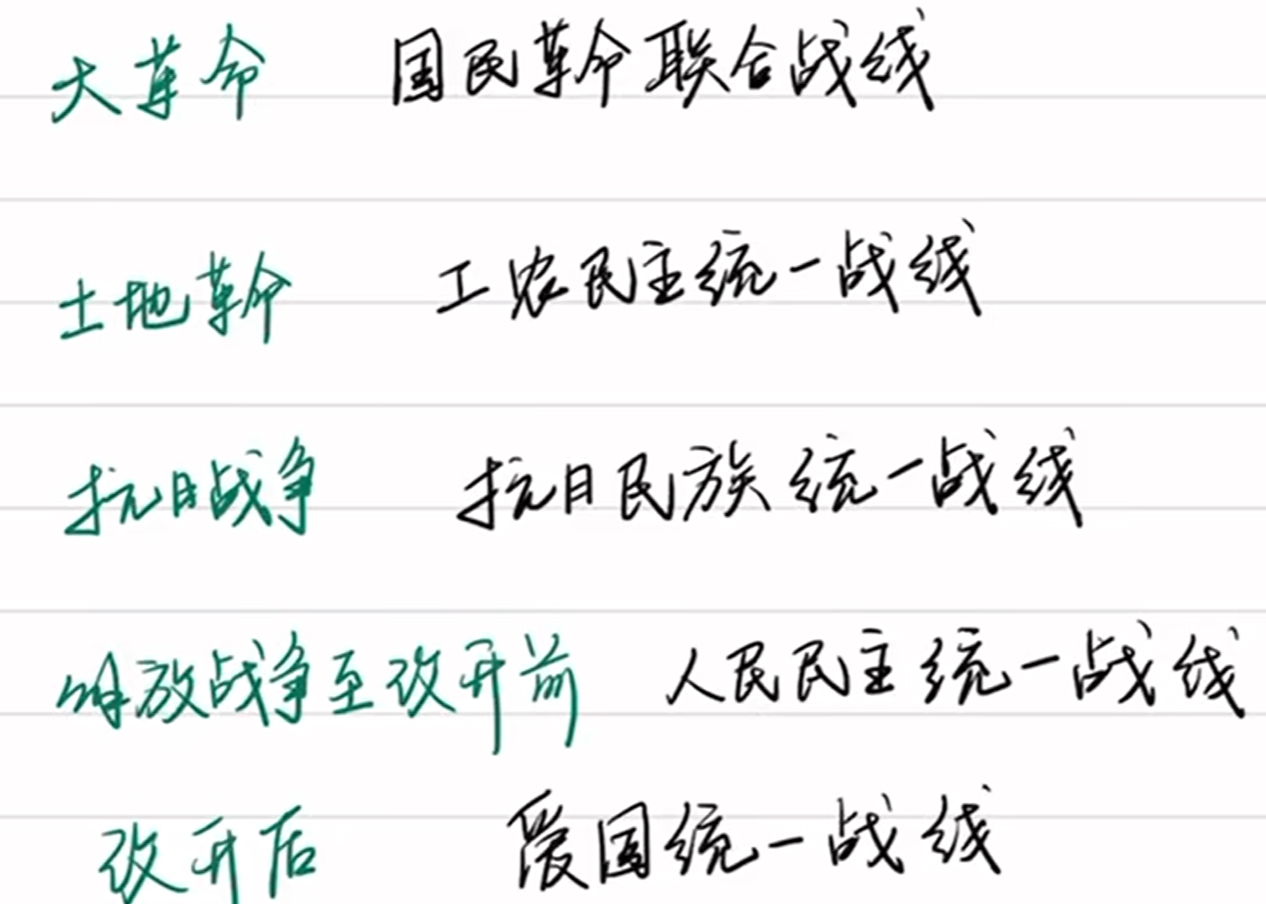 大革命 国民革命联合战线
土地革命 工农民主统一战线
抗日战争 抗日民族统一战线
解放战争至改开前 人民民主统一战线
改开后 爱国统一战线